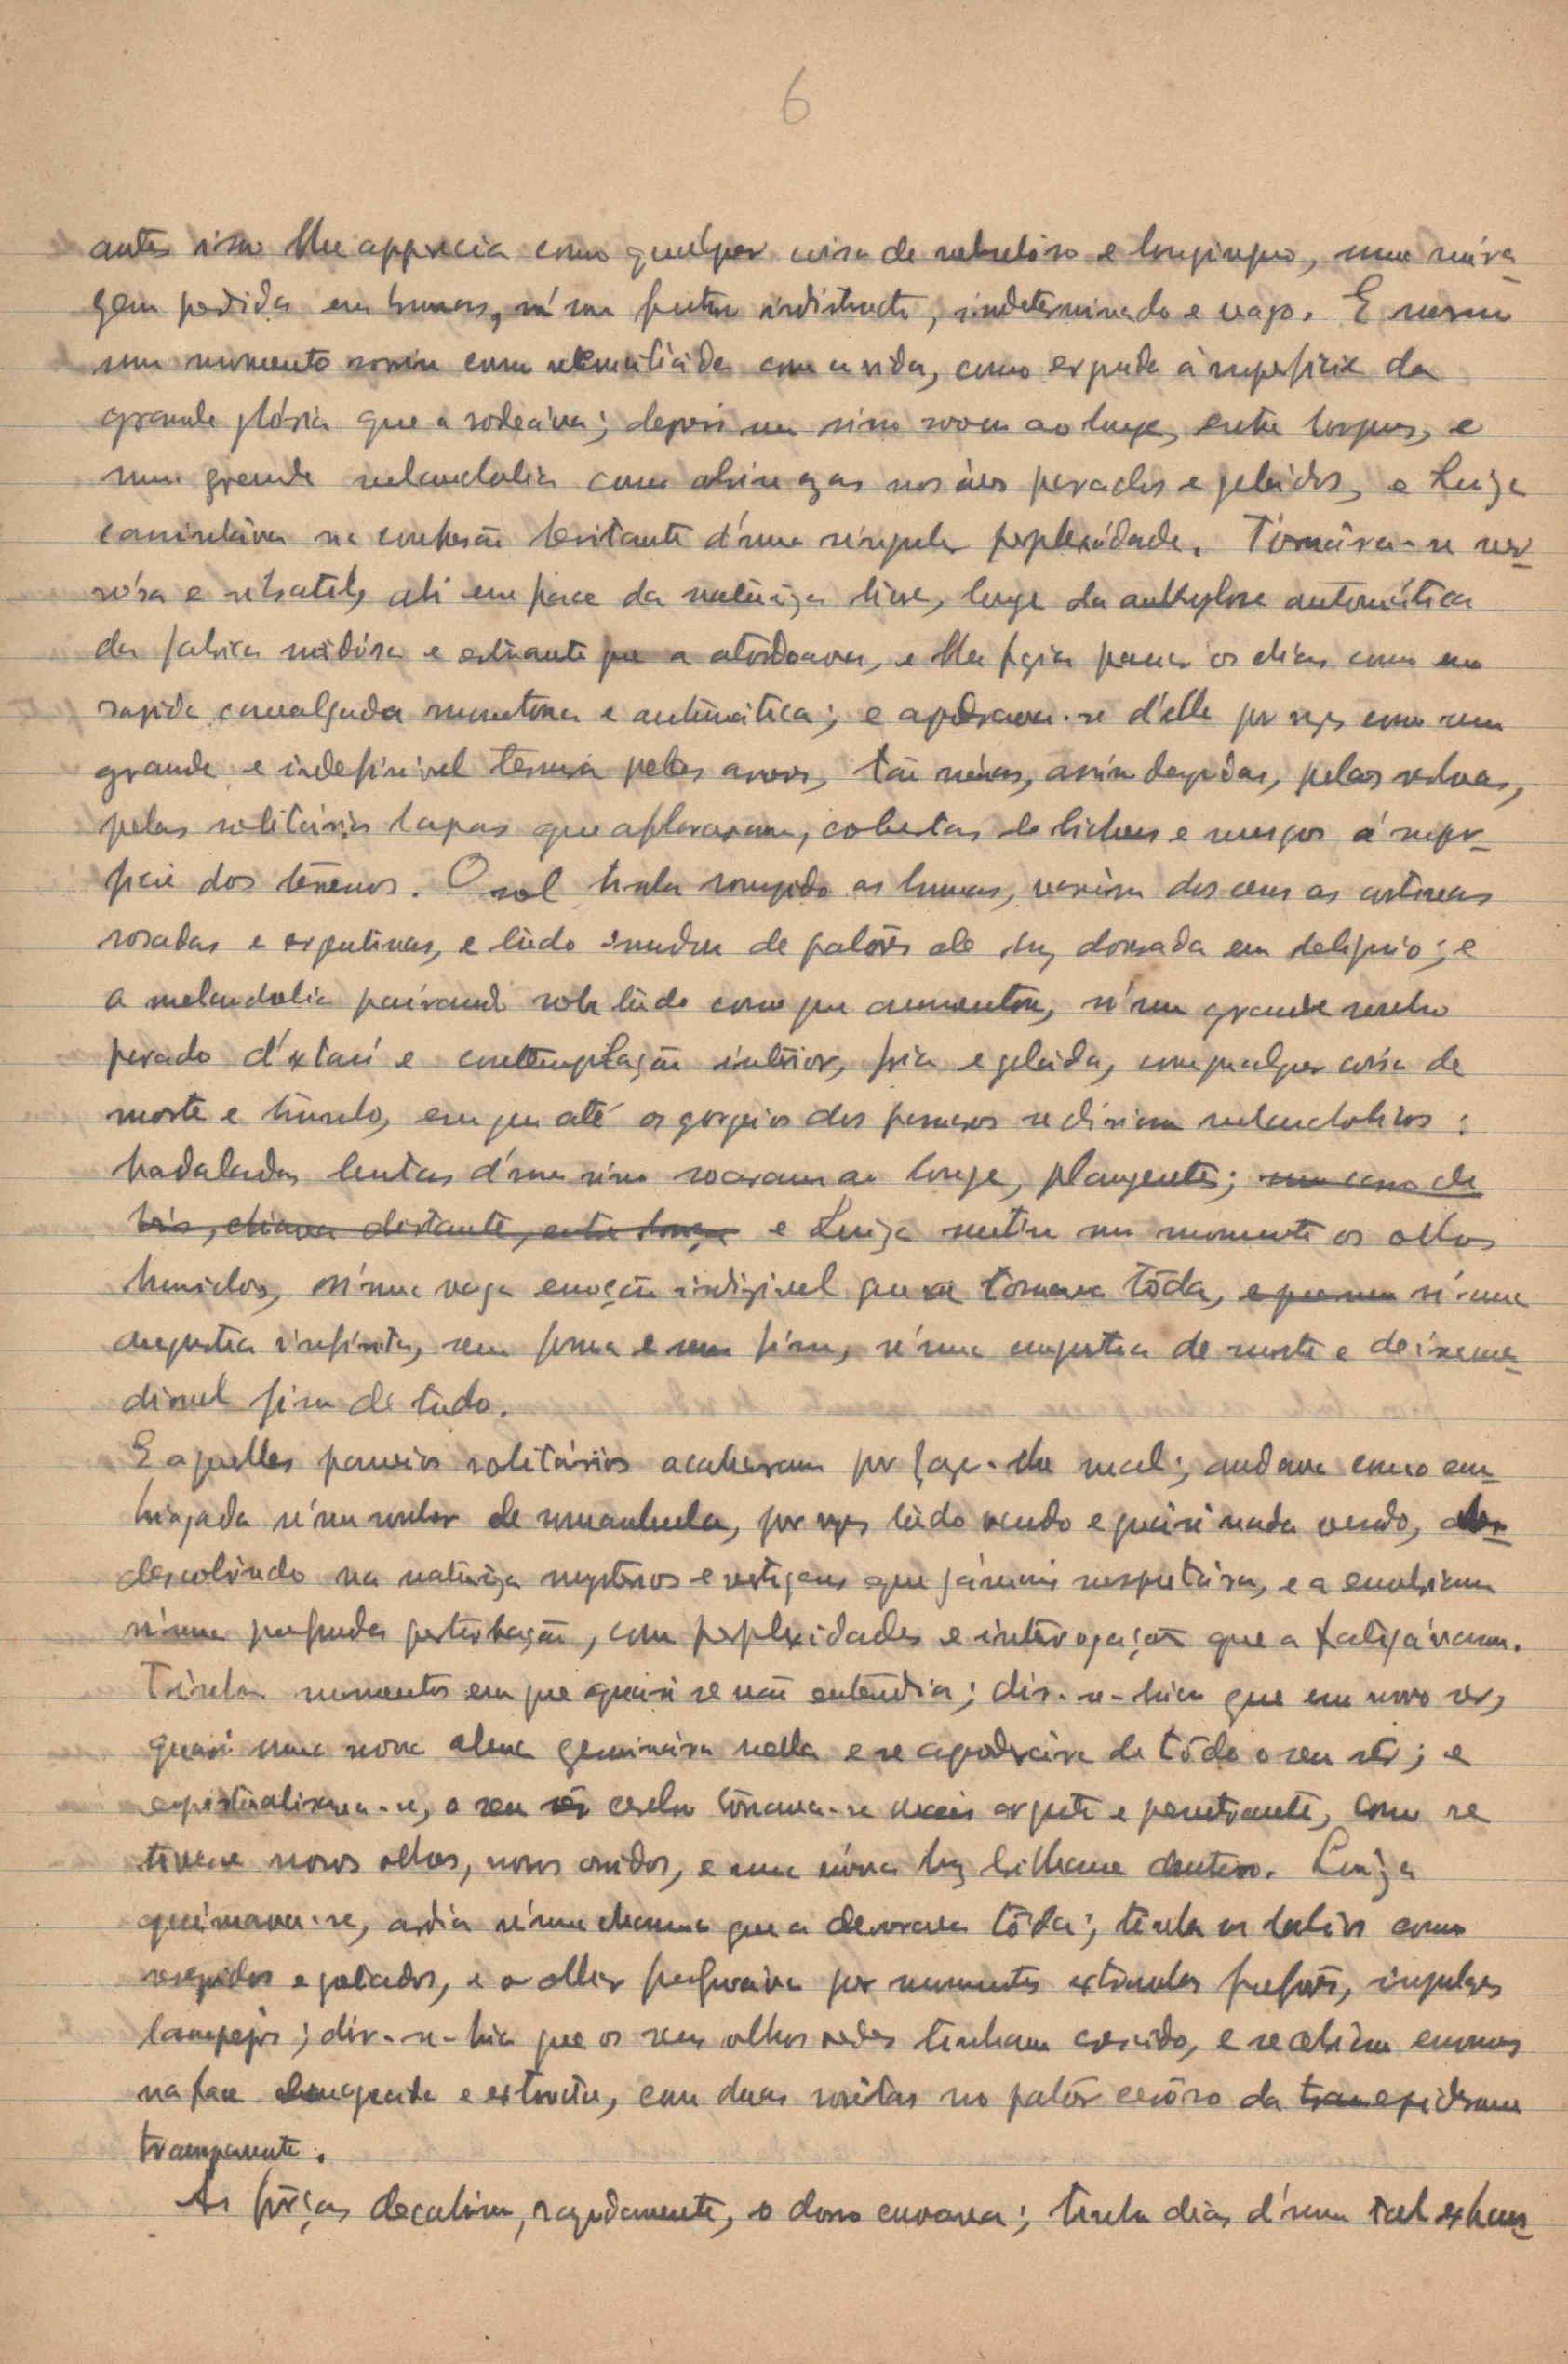 6
antes isso lhe apparecia como qualquer coisa de nebulôso e longinquo, uma míra-
gem perdida em brumas, n'um futuro indistincto, indeterminado e vago. E n'esse
um momento sorriu como reconciliada com a vida, como erguida á superficie da
grande glória que a rodeáva; depois um sino soou ao longe, entre longes, e
uma grande melancholia como abriu azas nos áres pesados e gelados, e Luiza
caminháva na confusão hesitante d'uma singular perplexidade. Tornára-se ner-
vósa e vibratil, ali em face da naturêza livre, longe da ankylose automática
da fabrica ruidósa e estuante que a atordoava, e lhe fazia passar os dias como em
rapida cavalgada monótona e automática; e apoderava-se d'ella por vezes como uma
grande e indefinivel ternura pelas arvores, tão núas, assim despidas, pelas relvas,
pelas solitárias lapas que afloravam, cobertas de lichens e musgos á super-
ficie dos terrenos. O sol tinha rompido as brumas, varrera dos ceus as cortinas
rosadas e argentinas, e tudo inundou de palôres de luz dourada em deliquio; e
a melancholia pairando sobre tudo como que aumentou, n'um grande sonho
pesado d'extasi e contemplação interior, fria e gelada, com qualquer coisa de
morte e tumulo, em que até os gorgeios dos passaros se diriam melancholicos:
badaladas lentas d'um sino soaram ao longe, plangentes; um carro de
bois, chiava distante, entre e Luiza sentiu um momento os olhos
humidos, n'uma vaga emoção indizivel que a tomava tôda, n'uma
angustia infinita, sem forma e sem fim, n'uma angustia de morte e de irreme-
diavel fim de tudo.
E aquelles passeios solitários acabaram por fazer-lhe mal; andava como em-
briagada n'um sonhar de somnambula, por vezes tudo vendo e quasi nada vendo,
descobrindo na naturêza mysterios e vertigens que jámais suspeitára, e a envolviam
n'uma profunda perturbação, com perplexidades e interrogações que a fatigávam.
Tinha momentos em que quasi se não entendia; dir-se-hia que um novo ser,
quasi uma nova alma germinára nella e se apoderára de tôdo o seu sêr; e
espiritualisava-se, o seu cerebro tornava-se mais arguto e penetrante, como se
tivesse novos olhos, novos ouvidos, e uma nova luz brilhasse dentro. Luiza
queimava-se, ardia n'uma chamma que a devorava tôda; tinha os labios como
resequidos e gretados, e o olhar por momentos extranhos fulgores,
lampejos; dir-se-hia que os seus olhos verdes tinham crescido, e se abriam enormes
na face e estreita, como duas no palôr ceróso da epiderme
transparente.
As fôrças decahiam, rapidamente, o dorso curvava; tinha dias d'um tal exhaus-